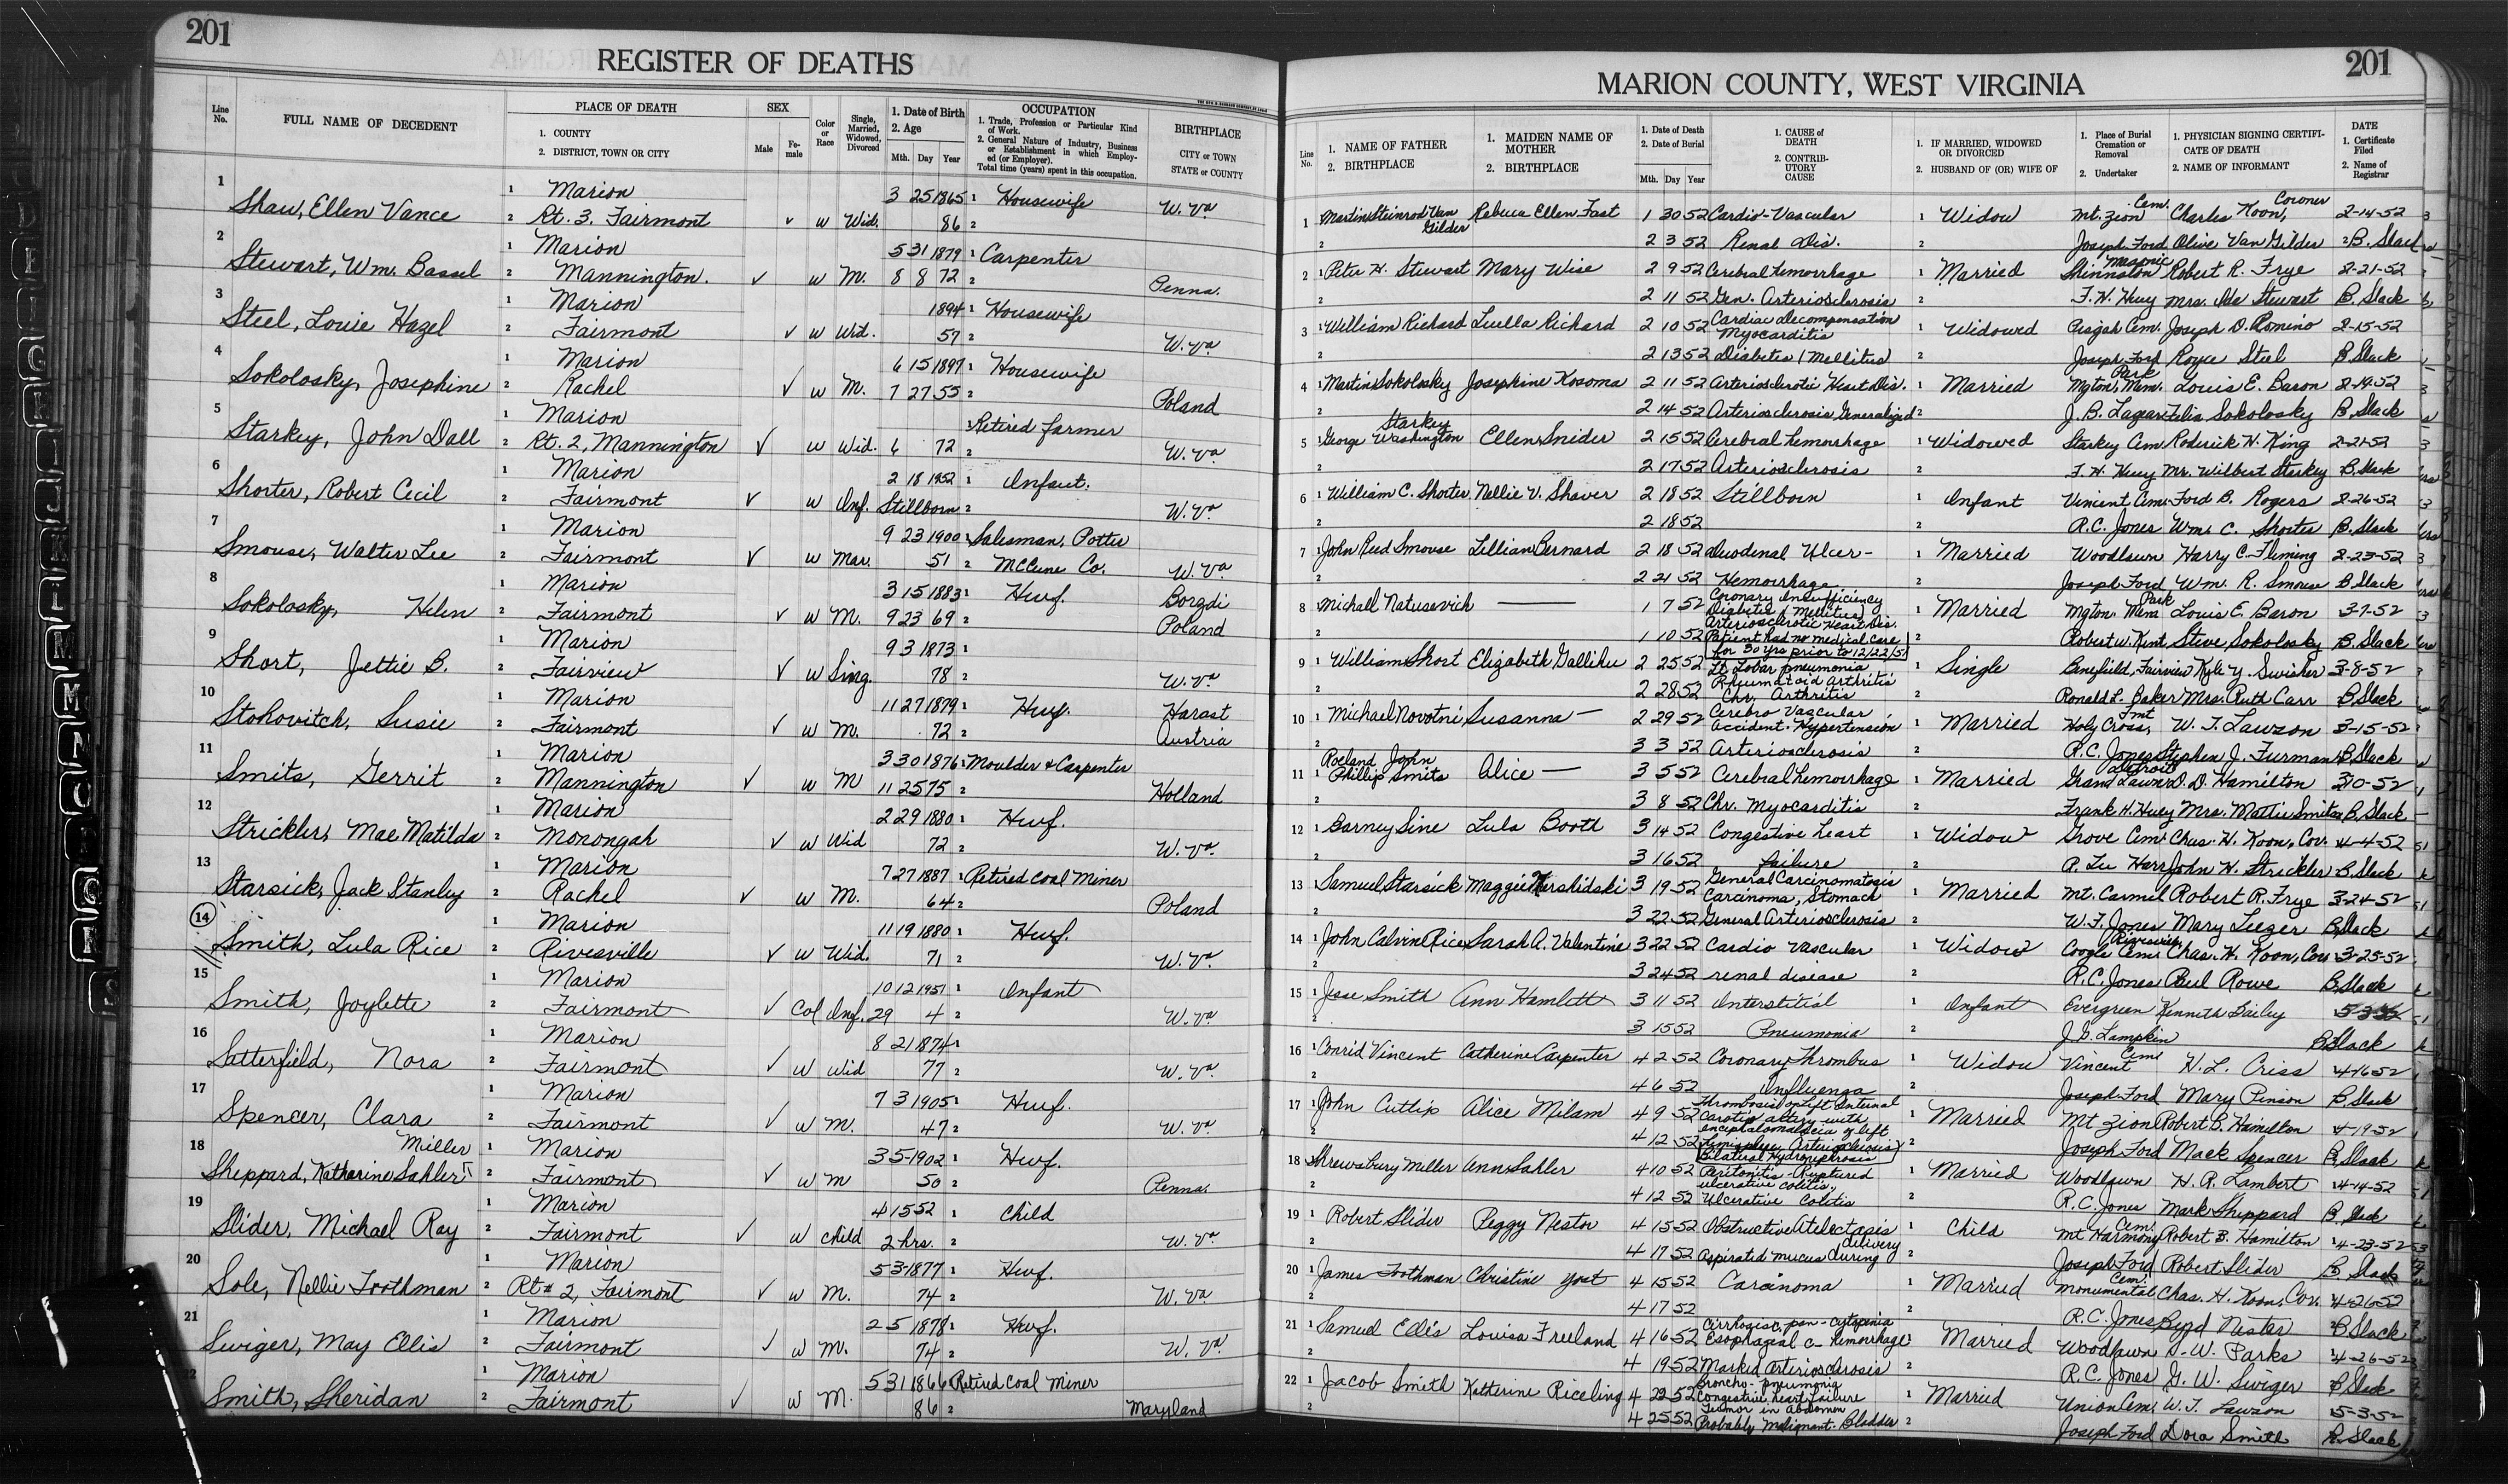 201
REGISTER OF DEATHS
Line No. FULL NAME OF DECEDENT PLACE OF DEATH 1. COUNTY 2. DISTRICT, TOWN OR CITY SEX Male Fe-male Color or Race Single, Married, Widowed, Divorced 1. Date of Birth 2. Age Mth. Day Year OCCUPATION 1. Trade, Profession or Particular Kind of Work. 2. General Nature of Industry, Business or Establishment in which Employ-ed (or Employer). Total time (years) spent in this occupation. BIRTHPLACE CITY or TOWN STATE or COUNTY
1 Marion 3 25 1865 1 Housewife
Shaw, Ellen Vance 2 Rt. 3. Fairmont ✓ w Wid. 86 2 W. Va
2 1 Marion 5 31 1879 1 Carpenter
Stewart, Wm. Bassel 2 Mannington. ✓ w M. 8 8 72 2 Penna.
3 1 Marion 1894 1 Housewife
Steel, Louie Hazel 2 Fairmont ✓ w Wid. 57 2 W. Va
4 1 Marion 6 15 1897 1 Housewife
Sokolosky, Josephine 2 Rachel ✓ w M. 7 27 55 2 Poland
5 1 Marion 1 Retired farmer
Starkey, John Dall 2 Rt. 2, Mannington ✓ w Wid. 6 72 2 W. Va
6 1 Marion 2 18 1952 1 Infant.
Shorter, Robert Cecil 2 Fairmont ✓ w Inf. Stillborn 2 W. Va.
7 1 Marion 9 23 1900 1 Salesman, Potter
Smouse, Walter Lee 2 Fairmont ✓ w Mar. 51 2 McCune Co. W. Va
8 1 Marion 3 15 1883 1 Huf. Borgdi
Sokolosky, Helen 2 Fairmont ✓ w M. 9 23 69 2 Poland
9 1 Marion 9 3 1873 1
Short, Jettie B. 2 Fairview ✓ w Sing. 78 2 W. Va
10 1 Marion 11 27 1879 1 Huf. Harast
Stohovitch, Susie 2 Fairmont ✓ w M. 72 2 Austria
11 1 Marion 3 30 1876 1 Moulder & Carpenter
Smits, Gerrit 2 Mannington ✓ w M 11 25 75 2 Holland
12 1 Marion 2 29 1880 1 Huf.
Strickler, Mae Matilda 2 Monongah ✓ w Wid 72 2 W. Va.
13 1 Marion 7 27 1887 1 Retired Coal Miner
Starsick, Jack Stanley 2 Rachel ✓ w M. 64 2 Poland
14 1 Marion 11 19 1880 1 Huf.
Smith, Lula Rice 2 Rivesville ✓ w Wid. 71 2 W. Va.
15 1 Marion 10 12 1951 1 Infant
Smith, Joylette 2 Fairmont ✓ Col Inf. 29 4 2 W. Va.
16 1 Marion 8 21 1874 1
Satterfield, Nora 2 Fairmont ✓ w Wid 77 2 W. Va.
17 1 Marion 7 3 1905 1 Huf.
Spencer, Clara 2 Fairmont ✓ w M. 47 2 W. Va.
18 Miller 1 Marion 3 5 1902 1 Huf.
Sheppard, Katharine Sahler 2 Fairmont ✓ w M 50 2 Penna.
19 1 Marion 4 15 52 1 Child
Slider, Michael Ray 2 Fairmont ✓ w Child 2 hrs. 2 W. Va
20 1 Marion 5 3 1877 1 Huf.
Sole, Nellie Toothman 2 Rt # 2, Fairmont ✓ w M. 74 2 W. Va
21 1 Marion 2 5 1878 1 Huf.
Swiger, May Ellis 2 Fairmont ✓ w M. 74 2 W. Va.
1 Marion 5 31 1866 Retired Coal Miner
Smith, Sheridan 2 Fairmont ✓ w M. 86 2 Maryland
201
MARION COUNTY, WEST VIRGINIA
Line No. 1. NAME OF FATHER 2. BIRTHPLACE 1. MAIDEN NAME OF MOTHER 2. BIRTHPLACE 1. Date of Death 2. Date of Burial Mth. Day Year 1. CAUSE of DEATH 2. CONTRIB-UTORY CAUSE 1. IF MARRIED, WIDOWED OR DIVORCED 2. HUSBAND OF (OR) WIFE OF 1. Place of Burial Cremation or Removal 2. Undertaker 1. PHYSICIAN SIGNING CERTIFI-CATE OF DEATH 2. NAME OF INFORMANT DATE 1. Certificate Filed 2. Name of Registrar
1 1 Martin Steinrod Van Gilder Rebecca Ellen Fast 1 30 52 Cardio-Vascular 1 Widow Mt. Zion Cem. Charles Koon, Coroner 2-14-52
2 2 3 52 Renal Dis. 2 Joseph Ford Olive Van Gilder 2 B. Slack
2 1 Peter H. Stewart Mary Wise 2 9 52 Cerebral hemorrhage 1 Married Shinnston Masonic Robert R. Frye 2-21-52
2 2 11 52 Gen. Arteriosclerosis 2 F. H. Huey Mrs. Ida Stewart B. Slack
3 1 William Richard Luella Richard 2 10 52 Cardiac decompensation Myocarditis 1 Widowed Pisgah Cem. Joseph D. Romino 2-15-52
2 2 13 52 Diabetes (Mellitus) 2 Joseph Ford Royce Steel B. Slack
4 1 Martin Sokolosky Josephine Kosoma 2 11 52 Arteriosclerotic Heart Dis. 1 Married Mgton. Mem. Park Louis E. Baron 2-19-52
2 2 14 52 Arteriosclerosis Generalized 2 J. B. Lazear Felix Sokolosky B. Slack
5 1 George Washington Starkey Ellen Snider 2 15 52 Cerebral hemorrhage 1 Widowed Starkey Cem. Roderick H. King 2-21-52
2 2 17 52 Arteriosclerosis 2 F. H. Huey Mr. Wilbert Starkey B. Slack
6 1 William C. Shorter Nellie V. Shaver 2 18 52 Stillborn 1 Infant Vincent Cem. Ford B. Rogers 2-26-52
2 2 18 52 2 R.C. Jones Wm. C. Shorter B. Slack
7 1 John Reed Smouse Lillian Bernard 2 18 52 Duodenal Ulcer- 1 Married Woodlawn Harry C. Fleming 2-23-52
2 2 21 52 Hemorrhage 2 Joseph Ford Wm. R. Smouse B. Slack
8 1 Michall Natusevich — 1 7 52 Cronary Insufficiency Diabetes (Mellitus) Arteriosclerotic Heart Dis. 1 Married Mgton. Mem. Park Louis E. Baron 3-7-52
2 1 10 52 Patient had no medical care for 30 yrs prior to 12/22/51 2 Robert W. Kent Steve Sokolosky B. Slack
9 1 William Short Elizabeth Gallihu 2 25 52 Lt. Lobar pneumonia 1 Single Benefield, Fairview Kyle Y. Swisher 3-8-52
2 2 28 52 Rheumatoid Arthritis Chr. Arthritis 2 Ronald L. Baker Mrs. Ruth Carr B. Slack
10 1 Michael Novotni Susanna — 2 29 52 Cerebro Vascular Accident. Hypertension 1 Married Holy Cross, Fmt W. T. Lawson 3-15-52
2 3 3 52 Arteriosclerosis 2 R.C. Jones Stephen J. Furman B. Slack
11 1 Roeland John Phillip Smits Alice — 3 5 52 Cerebral hemorrhage 1 Married Grand Lawn Detroit D. D. Hamilton 3-10-52
2 3 8 52 Chr. Myocarditis 2 Frank H. Huey Mrs. Mattie Smits B. Slack
12 1 Barney Sine Lula Booth 3 14 52 Congestive heart 1 Widow Grove Cem. Chas. H. Koon, Cor. 4-4-52
2 3 16 52 failure 2 R. Lee Harr John H. Strickler B. Slack
13 1 Samuel Starsick Maggie Kershidski 3 19 52 General Carcinomatosis Carcinoma, Stomach 1 Married Mt. Carmel Robert R. Frye 3-24-52
2 3 22 52 General Arteriosclerosis 2 W. F. Jones Mary Leeger B. Slack
14 1 John Calvin Rice Sarah A. Valentine 3 22 52 Cardio Vascular 1 Widow Coogle Cem. Rivesville Chas. H. Koon, Cor 3-25-52
2 3 24 52 renal disease 2 R.C. Jones Paul Rowe B. Slack
15 1 Jese Smith Ann Hamlett 3 11 52 Interstitial 1 Infant Evergreen Kenneth Bailey
2 3 15 52 Pneumonia 2 J. G. Lampkin B Slack
16 1 Conrid Vincent Catherine Carpenter 4 2 52 Coronary Thrombus 1 Widow Vincent Cem. H. L. Criss 4-16-52
2 4 6 52 Influenza 2 Joseph Ford Mary Pinson B. Slack
17 1 John Cutlip Alice Milam 4 9 52 Thrombosis of Left Internal Carotid artery with encephalomalacia of left 1 Married Mt Zion Robert B. Hamilton 4-19-52
2 4 12 52 hemisphere Arteriosclerosis Bilateral Hydronephrosis 2 Joseph Ford Mack Spencer B. Slack
18 1 Shrewsbury Miller Ann Sahler 4 10 52 Peritonitis - Ruptured ulcerative colitis. 1 Married Woodlawn H. R. Lambert 4-14-52
2 4 12 52 Ulcerative Colitis 2 R.C. Jones Mark Sheppard B. Slack
19 1 Robert Slider Peggy Nestor 4 15 52 Obstructive Atelectasis 1 Child Mt Harmony Cem. Robert B. Hamilton 4-23-52
2 4 17 52 Aspirated mucus during delivery 2 Joseph Ford Robert Slider B. Slack
20 1 James Toothman Christine Yost 4 15 52 Carcinoma 1 Married Monumental Cem. Chas. H. Koon, Cor. 4-26-52
2 4 17 52 2 R.C. Jones Byrd Nester B Slack
21 1 Samuel Ellis Louisa Freeland 4 16 52 Cirrhosis, pan-cytopenia Esophagial c- hemorrhage 1 Married Woodlawn S. W. Parks 4-26-52
2 4 19 52 Marked Arteriosclerosis 2 R.C. Jones G. W. Swiger B Slack
22 1 Jacob Smith Katherine Riceling 4 22 52 Broncho-pneumonia Congestive heart failure 1 Married Union Cem. W. T. Lawson 5-3-52
2 4 25 52 Tumor in Abdomen Probably Malignant. Bladder 2 Joseph Ford Dora Smith B. Slack